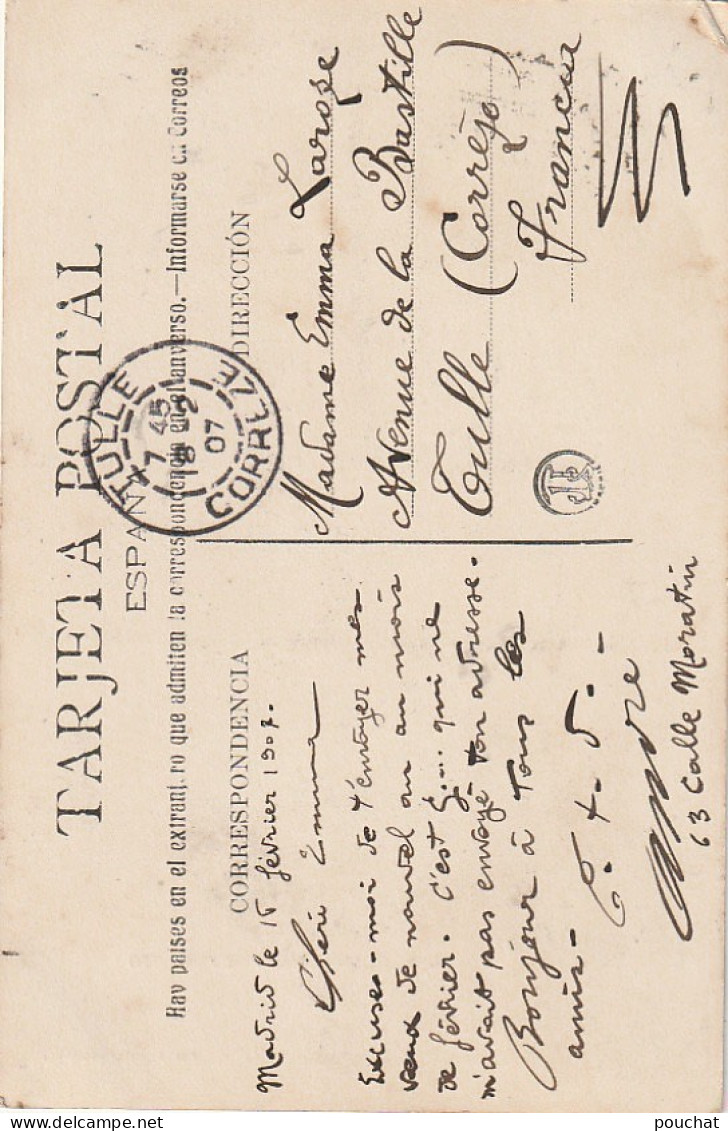 TARJETA POSTAL
ESPAÑA
Hay paises en el extranjero que admiten la correspondencia en el anverso.—Informarse en Correos
CORRESPONDENCIA
Madrid le 15 février 1907.
Chère Emma
Excuses-moi de t'envoyer mes
vœux de nouvel an au mois
de février. C'est G... qui ne
m'avait pas envoyé ton adresse.
Bonjour à tous les
amis-
63 Calle Moratin
DIRECCIÓN
Madame Emma Laroze
Avenue de la Bastille
Tulle (Corrèze)
Francia
TULLE
7 45
18 -2
07
CORREZE
MADRID
pouchat